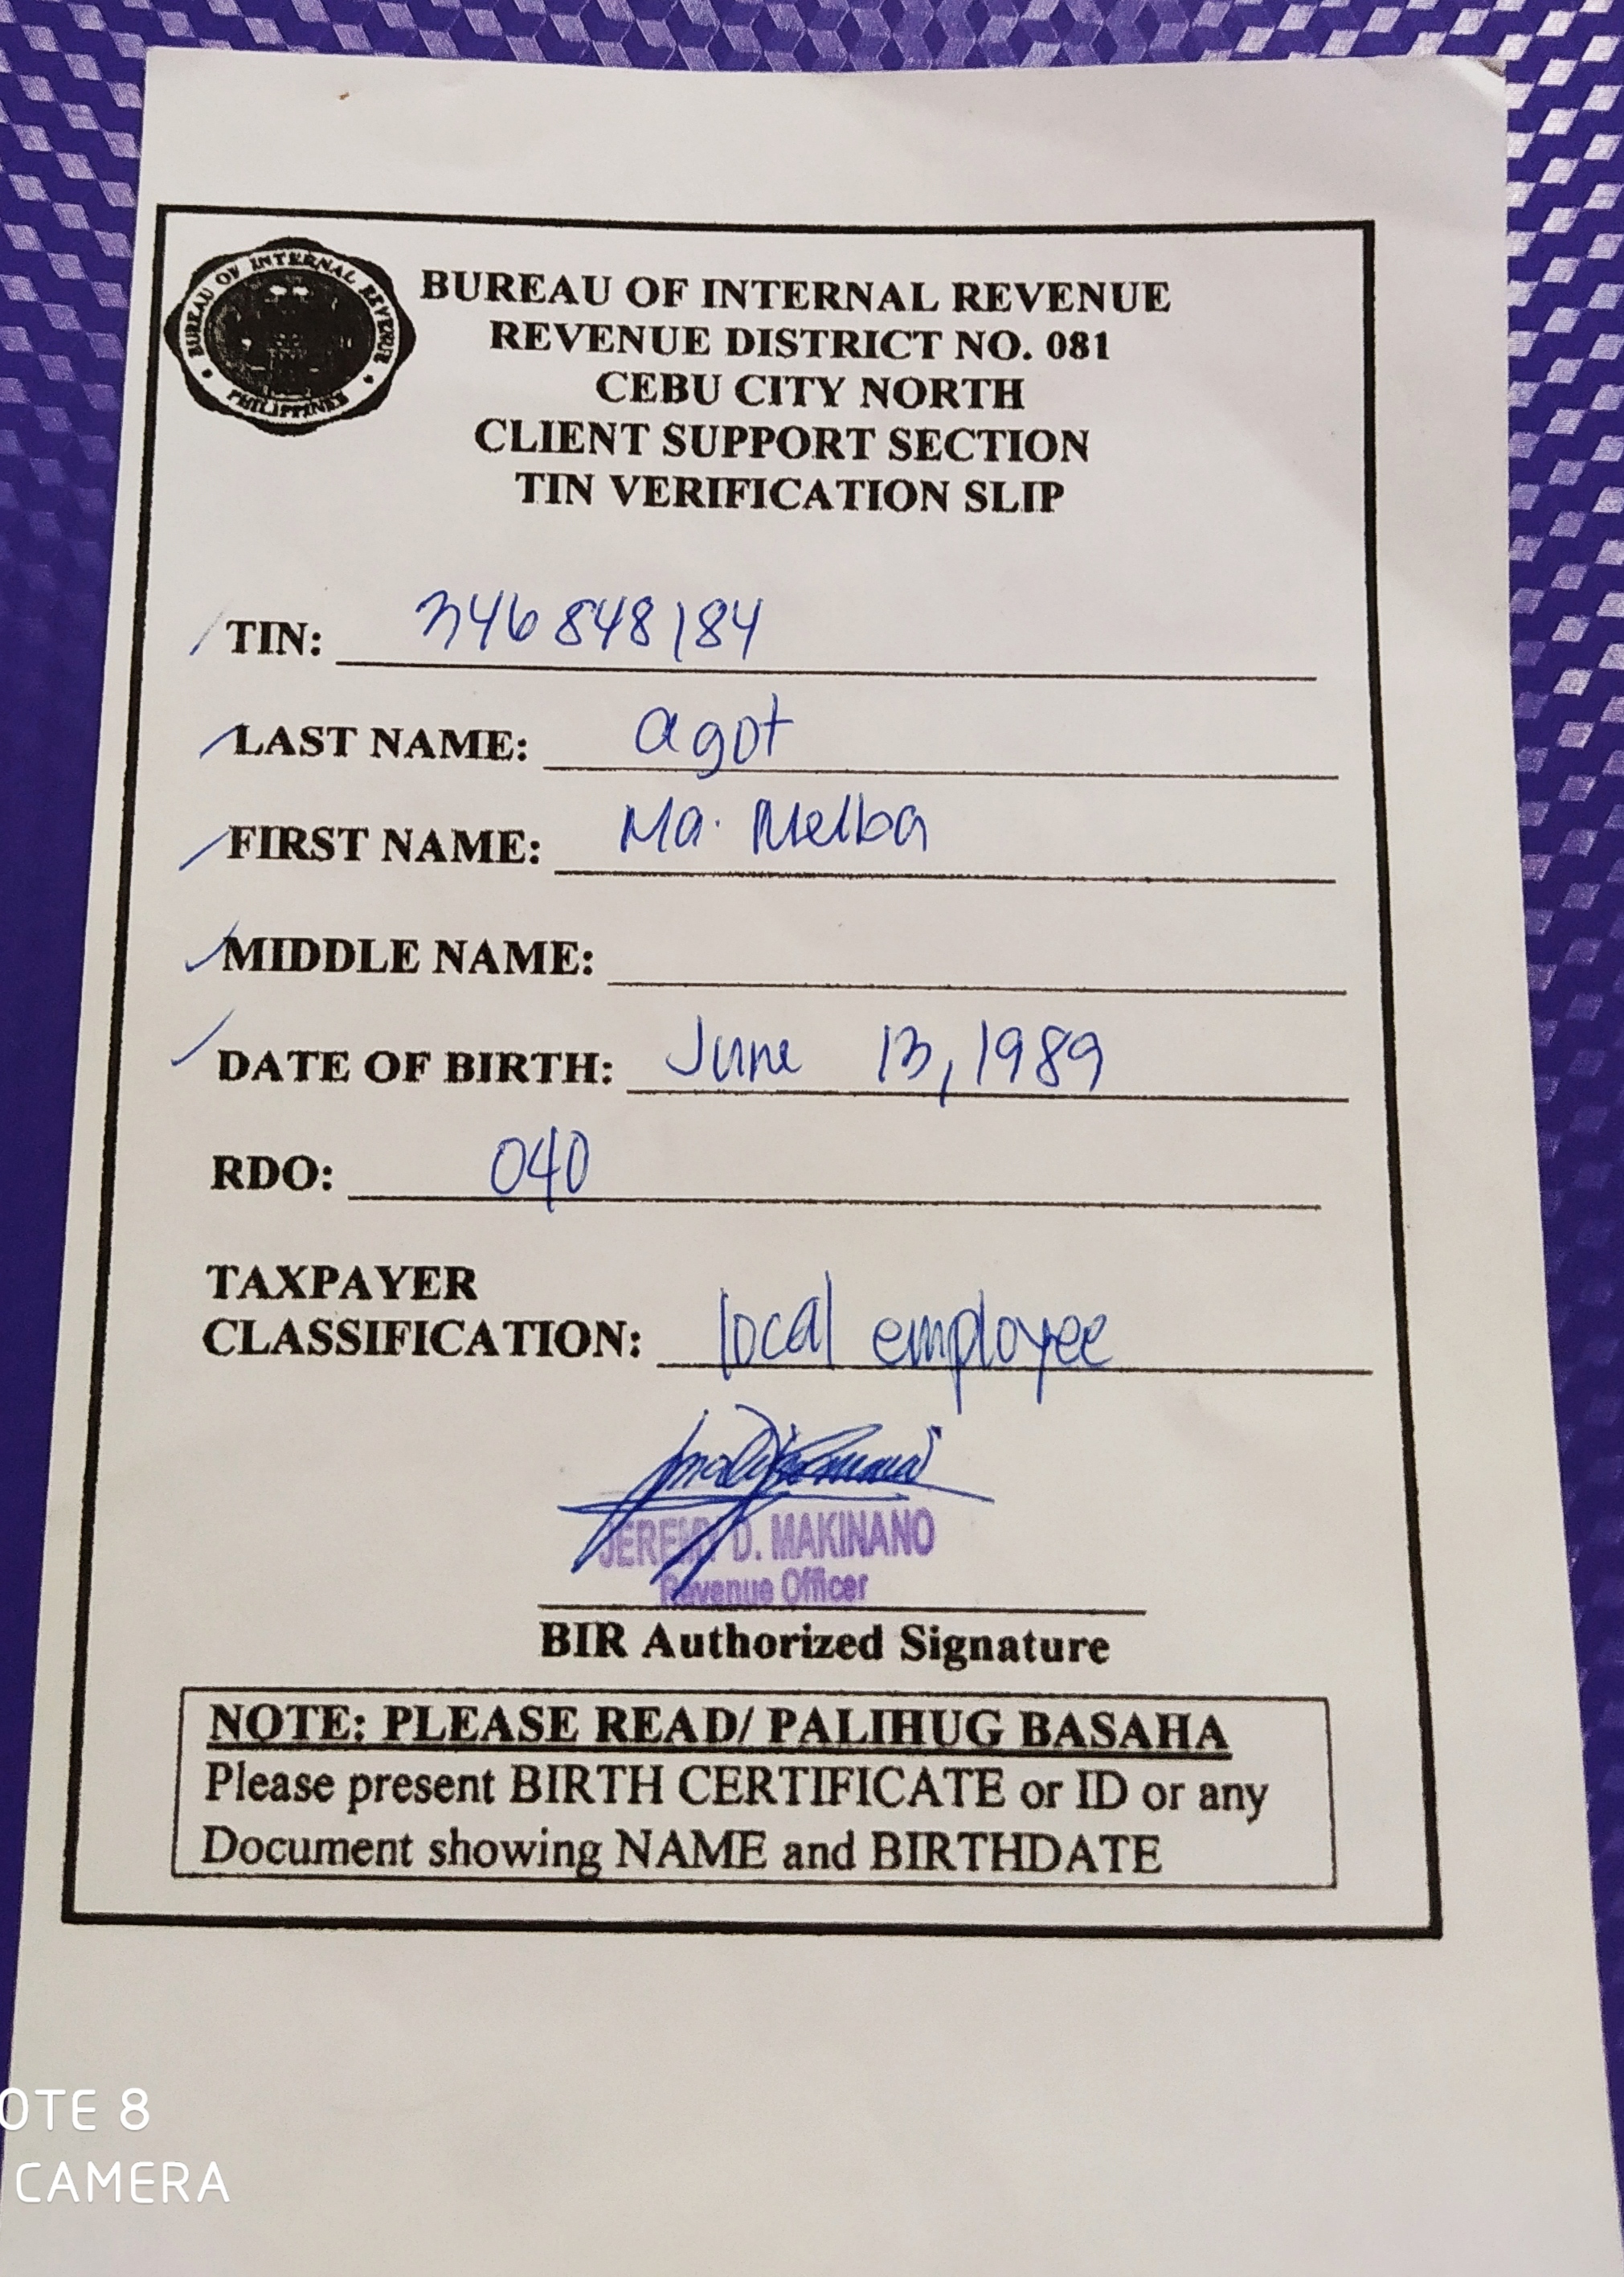 BUREAU OF INTERNAL REVENUE
PHILIPPINES
BUREAU OF INTERNAL REVENUE
REVENUE DISTRICT NO. 081
CEBU CITY NORTH
CLIENT SUPPORT SECTION
TIN VERIFICATION SLIP
TIN: 346 848 184
LAST NAME: agot
FIRST NAME: Ma. Melba
MIDDLE NAME:
DATE OF BIRTH: June 13, 1989
RDO: 040
TAXPAYER
CLASSIFICATION: local employee
D. MAKINANO
Revenue Officer
BIR Authorized Signature
NOTE: PLEASE READ/ PALIHUG BASAHA
Please present BIRTH CERTIFICATE or ID or any
Document showing NAME and BIRTHDATE
OTE 8
CAMERA